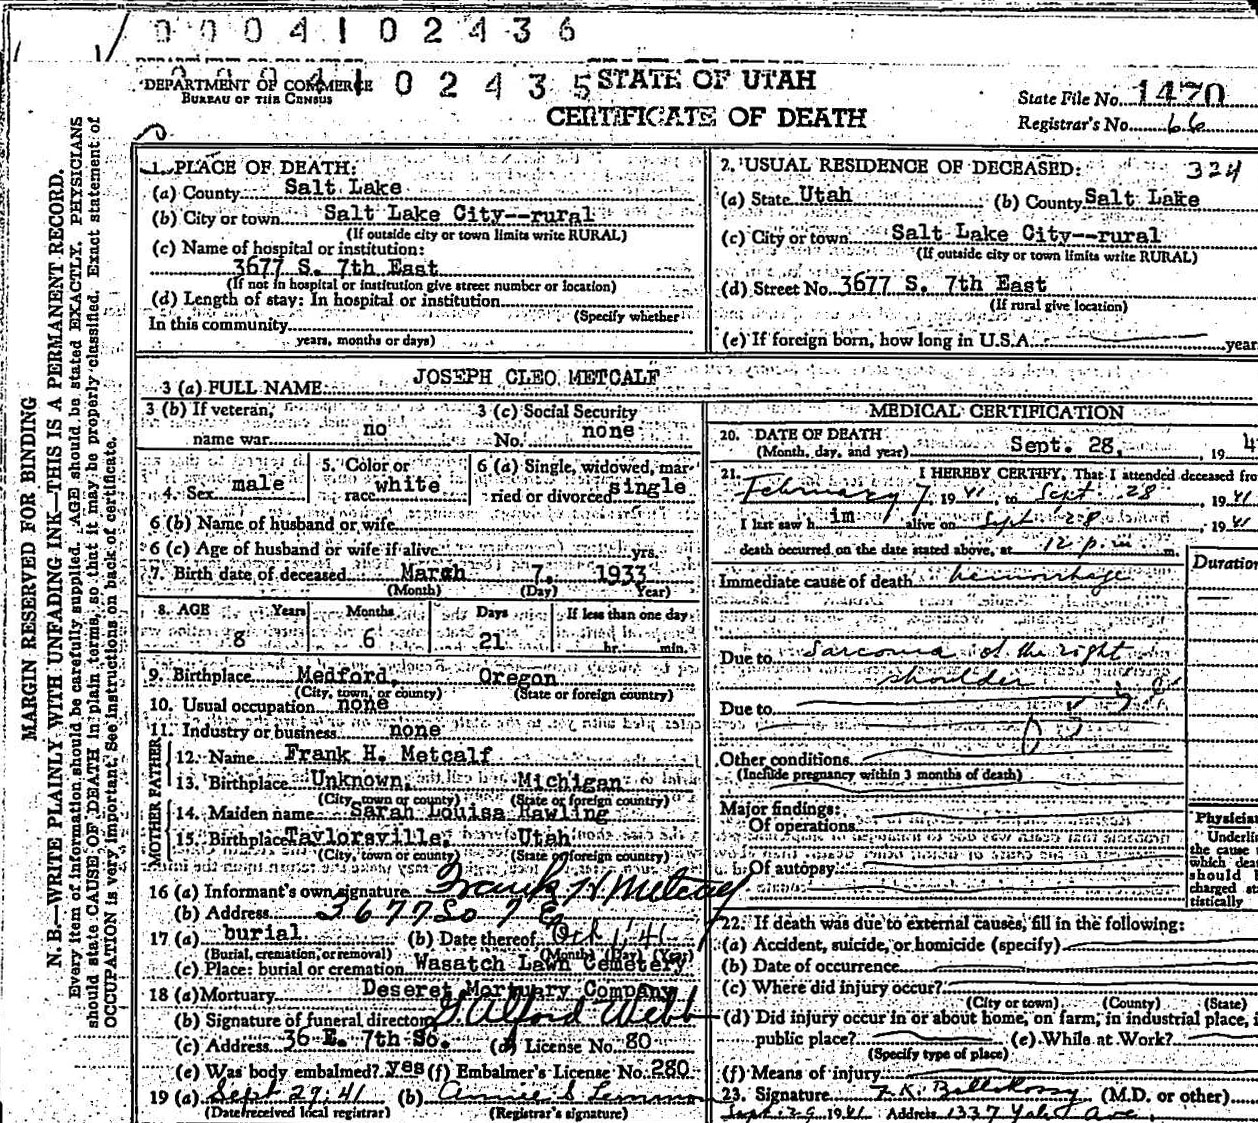 0004102436
DEPARTMENT OF COMMERCE
BUREAU OF THE CENSUS
0004102435
STATE OF UTAH
CERTIFICATE OF DEATH
State File No. 1470
Registrar's No. 66
MARGIN RESERVED FOR BINDING
N. B.—WRITE PLAINLY WITH UNFADING INK—THIS IS A PERMANENT RECORD.
Every item of information should be carefully supplied. AGE should be stated EXACTLY. PHYSICIANS
should state CAUSE OF DEATH in plain terms, so that it may be properly classified. Exact statement of
OCCUPATION is very important. See instructions on back of certificate.
1. PLACE OF DEATH:
(a) County Salt Lake
(b) City or town Salt Lake City--rural
(If outside city or town limits write RURAL)
(c) Name of hospital or institution:
3677 S. 7th East
(If not in hospital or institution give street number or location)
(d) Length of stay: In hospital or institution
(Specify whether
In this community
years, months or days)
2. USUAL RESIDENCE OF DECEASED: 324
(a) State Utah (b) County Salt Lake
(c) City or town Salt Lake City--rural
(If outside city or town limits write RURAL)
(d) Street No. 3677 S. 7th East
(If rural give location)
(e) If foreign born, how long in U.S.A. year
3 (a) FULL NAME JOSEPH CLEO METCALF
3 (b) If veteran, 3 (c) Social Security
name war no No. none
4. Sex male 5. Color or race white 6 (a) Single, widowed, married or divorced single
6 (b) Name of husband or wife
6 (c) Age of husband or wife if alive yrs.
7. Birth date of deceased March 7, 1933
(Month) (Day) Year)
8. AGE Years Months Days If less than one day
8 6 21 hr. min.
9. Birthplace Medford, Oregon
(City, town, or county) (State or foreign country)
10. Usual occupation none
11. Industry or business none
FATHER
12. Name Frank H. Metcalf
13. Birthplace Unknown, Michigan
(City, town or county) (State or foreign country)
MOTHER
14. Maiden name Sarah Louisa Rawling
15. Birthplace Taylorsville, Utah
(City, town or county) (State or foreign country)
16 (a) Informant's own signature Frank H Metcalf
(b) Address 3677 So 7 E
17 (a) burial (b) Date thereof Oct 1, '41
(Burial, cremation, or removal) (Month) (Day) (Year)
(c) Place: burial or cremation Wasatch Lawn Cemetery
18 (a) Mortuary Deseret Mortuary Company
(b) Signature of funeral director G Alford Webb
(c) Address 36 E. 7th So. (d) License No. 80
(e) Was body embalmed? yes (f) Embalmer's License No. 280
19 (a) Sept 29, 41 (b) Annie S
(Date received local registrar) (Registrar's signature)
MEDICAL CERTIFICATION
20. DATE OF DEATH
(Month, day, and year) Sept. 28, 19 4
21. I HEREBY CERTIFY, That I attended deceased fro
February 7 1941 to Sept 28, 1941
I last saw h im alive on Sept 28, 1941
death occurred on the date stated above, at 12 p.m. m.
Duration
Immediate cause of death hemorrhage
Due to Sarcoma of the right
shoulder
Due to
Other conditions
(Include pregnancy within 3 months of death)
Major findings:
Of operations
Of autopsy
Physicia
Underli
the cause
which dea
should b
charged st
tistically
22. If death was due to external causes, fill in the following:
(a) Accident, suicide, or homicide (specify)
(b) Date of occurrence
(c) Where did injury occur?
(City or town) (County) (State)
(d) Did injury occur in or about home, on farm, in industrial place, i
public place? (e) While at Work?
(Specify type of place)
(f) Means of injury
23. Signature (M.D. or other)
Sept 29 1941 Address 1337 Yale Ave.